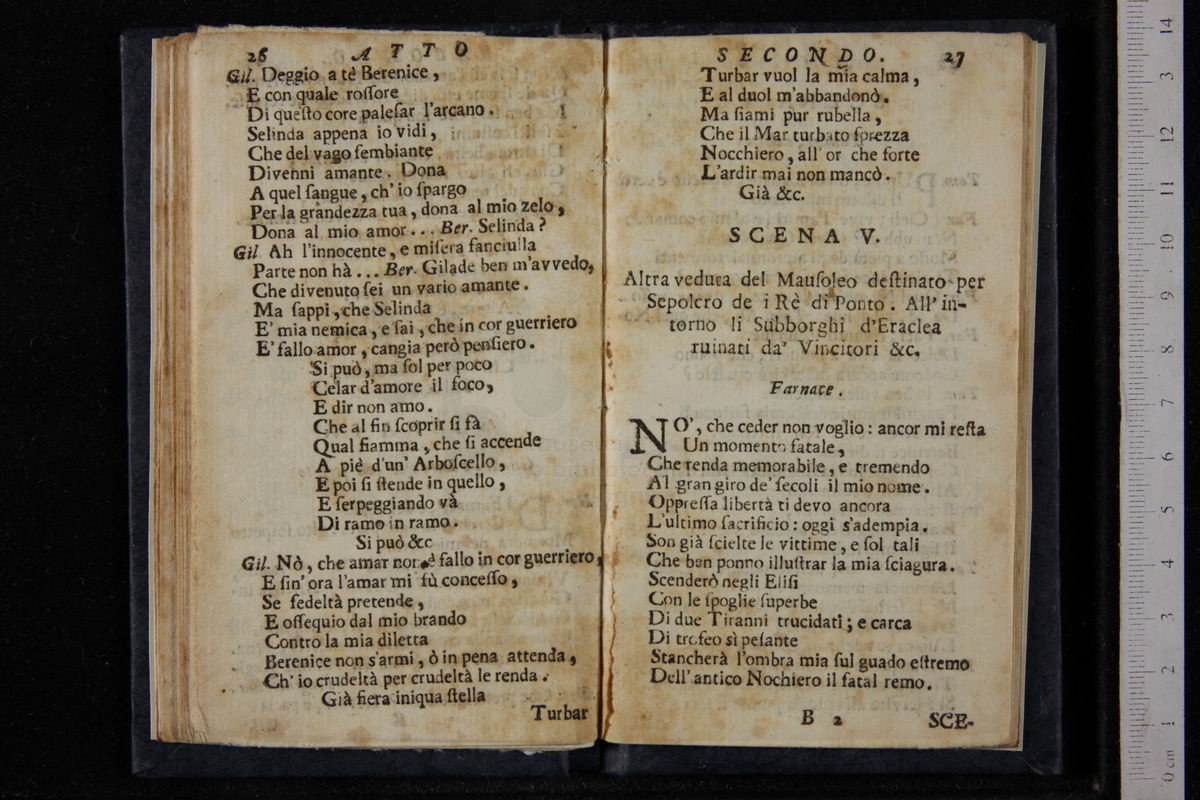 26 ATTO
Gil. Deggio a tè Berenice,
E con quale roſſore
Di queſto core paleſar l'arcano.
Selinda appena io vidi,
Che del vago ſembiante
Divenni amante. Dona
A quel ſangue, ch' io ſpargo
Per la grandezza tua, dona al mio zelo,
Dona al mio amor... Ber. Selinda?
Gil Ah l'innocente, e miſera fanciulla
Parte non hà... Ber. Gilade ben m'avvedo,
Che divenuto ſei un vario amante.
Ma ſappi, che Selinda
E' mia nemica, e ſai, che in cor guerriero
E' fallo amor, cangia però penſiero.
Si può, ma ſol per poco
Celar d'amore il foco,
E dir non amo.
Che al fin ſcoprir ſi fà
Qual fiamma, che ſi accende
A piè d'un' Arboſcello,
E poi ſi ſtende in quello,
E ſerpeggiando và
Di ramo in ramo.
Si può &c
Gil. Nò, che amar non è fallo in cor guerriero,
E ſin' ora l'amar mi fù conceſſo,
Se fedeltà pretende,
E oſſequio dal mio brando
Contro la mia diletta
Berenice non s'armi, ò in pena attenda,
Ch' io crudeltà per crudeltà le renda.
Già fiera iniqua ſtella
Turbar
SECONDO. 27
Turbar vuol la mia calma,
E al duol m'abbandonò.
Ma ſiami pur rubella,
Che il Mar turbato ſprezza
Nocchiero, all' or che forte
L'ardir mai non mancò.
Già &c.
SCENA V.
Altra veduta del Mauſoleo deſtinato per
Sepolcro de i Rè di Ponto. All' in-
torno li Subborghi d'Eraclea
ruinati da' Vincitori &c.
Farnace.
NO', che ceder non voglio: ancor mi reſta
Un momento fatale,
Che renda memorabile, e tremendo
Al gran giro de' ſecoli il mio nome.
Oppreſſa libertà ti devo ancora
L'ultimo ſacrificio: oggi s'adempia.
Son già ſcielte le vittime, e ſol tali
Che ban ponno illuſtrar la mia ſciagura.
Scenderò negli Eliſi
Con le ſpoglie ſuperbe
Di due Tiranni trucidati; e carca
Di trofeo sì peſante
Stancherà l'ombra mia ſul guado eſtremo
Dell' antico Nochiero il fatal remo.
B 2 SCE-
0 cm 1 2 3 4 5 6 7 8 9 10 11 12 13 14